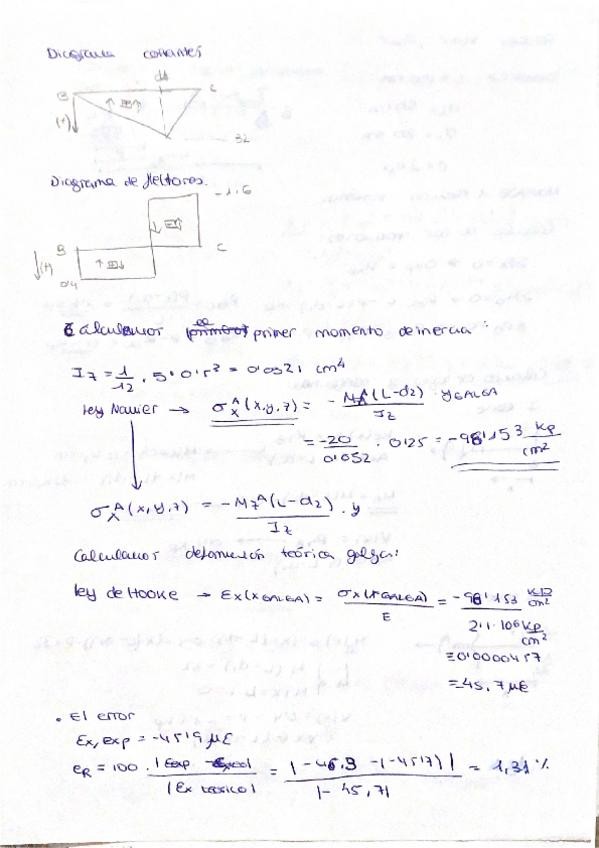 Diagrama cortantes
d1
B C
(+)
32
Diagrama de flectores.
-1.6
B C
(+)
0.4
Calculamos primer momento de inercia:
Iz = 1/12 . 5.0'5³ = 0'0521 cm⁴
Ley Navier → σxᴬ(x,y,z) = -Mzᴬ(L-d2)/Iz . yGALGA
= -20/0'052 . 0'25 = -98'153 Kp/cm²
σxᴬ(x,y,z) = -Mzᴬ(L-d2)/Iz . y
Calculamos deformación teórica galga:
Ley de HOOKE → Ex(xGALGA) = σx(xGALGA)/E = -98'153 Kp/cm² / 2'1.10⁶ Kp/cm²
= 0'0000457
= -45.7 µE
• El error
Ex,exp = -45'9 µE
eR = 100 . |Eexp - | / |Ex teórico| = |-46.3 -(-45'7)| / |-45,7| = 1,31 %